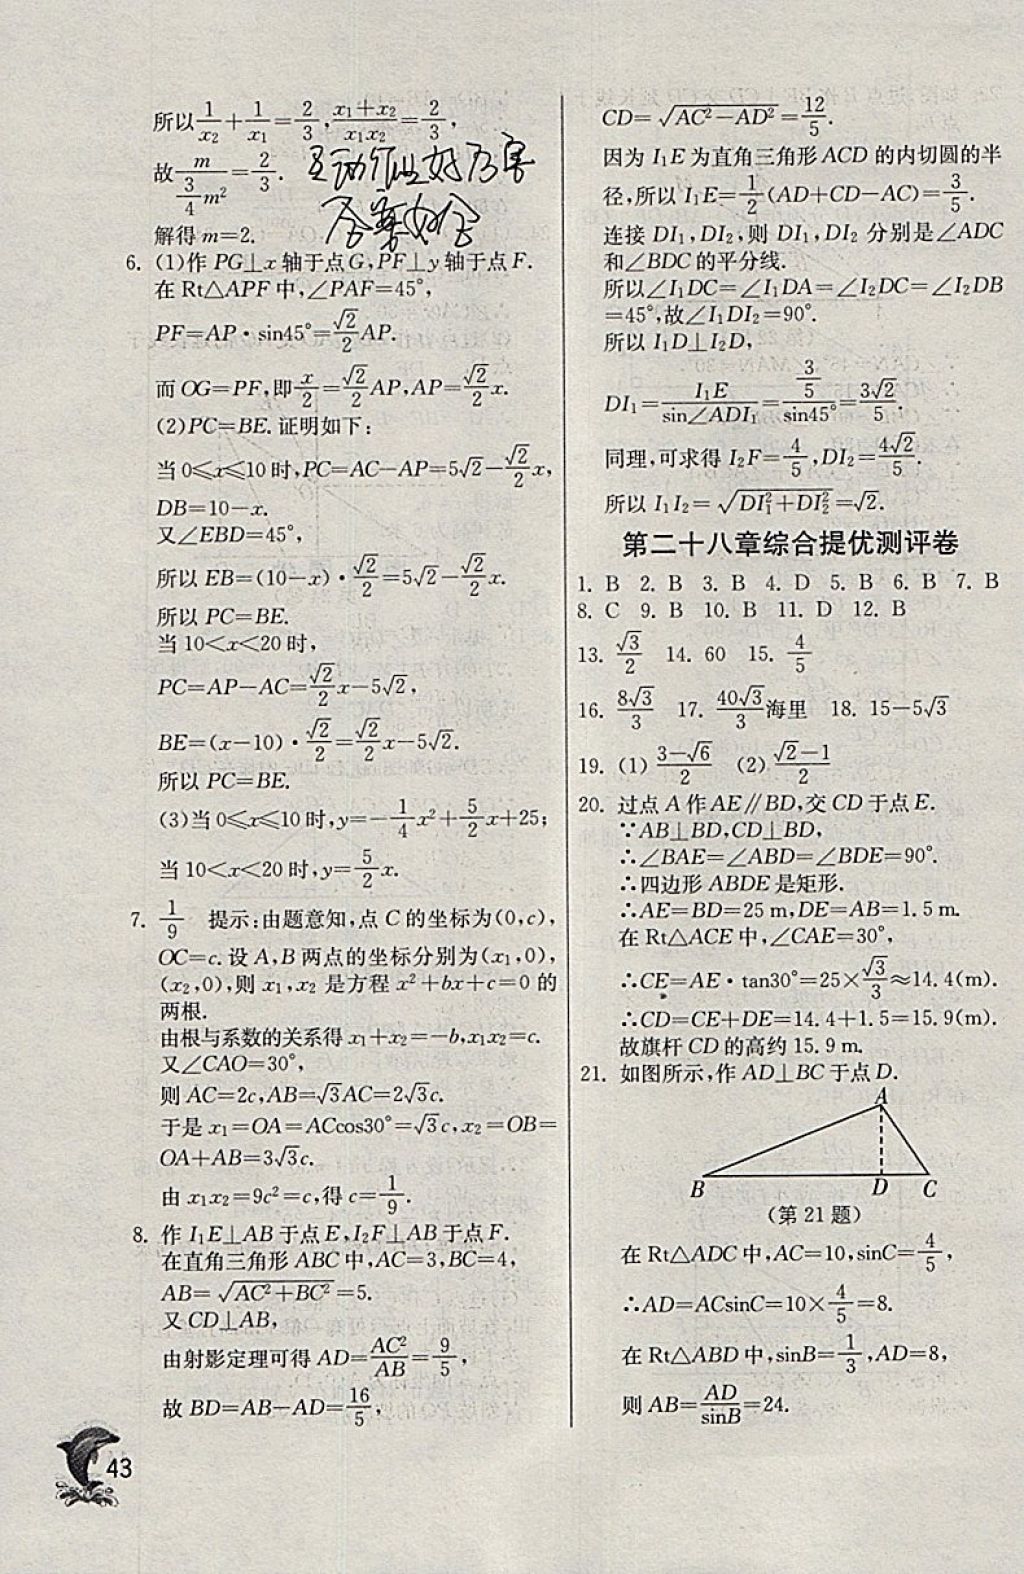 所以1/x₂+1/x₁=2/3,(x₁+x₂)/(x₁x₂)=2/3,
故m/(3/4 m²)=2/3.
解得m=2.
6. (1)作PG⊥x轴于点G,PF⊥y轴于点F.
在Rt△APF中,∠PAF=45°,
PF=AP·sin45°=√2/2 AP.
而OG=PF,即x/2=√2/2 AP,AP=√2/2 x.
(2)PC=BE.证明如下:
当0≤x≤10时,PC=AC-AP=5√2-√2/2 x,
DB=10-x.
又∠EBD=45°,
所以EB=(10-x)·√2/2=5√2-√2/2 x.
所以PC=BE.
当10<x<20时,
PC=AP-AC=√2/2 x-5√2,
BE=(x-10)·√2/2=√2/2 x-5√2.
所以PC=BE.
(3)当0≤x≤10时,y=-1/4 x²+5/2 x+25;
当10<x<20时,y=5/2 x.
7. 1/9 提示:由题意知,点C的坐标为(0,c),
OC=c.设A,B两点的坐标分别为(x₁,0),
(x₂,0),则x₁,x₂是方程x²+bx+c=0的
两根.
由根与系数的关系得x₁+x₂=-b,x₁x₂=c.
又∠CAO=30°,
则AC=2c,AB=√3AC=2√3c.
于是x₁=OA=ACcos30°=√3c,x₂=OB=
OA+AB=3√3c.
由x₁x₂=9c²=c,得c=1/9.
8. 作I₁E⊥AB于点E,I₂F⊥AB于点F.
在直角三角形ABC中,AC=3,BC=4,
AB=√(AC²+BC²)=5.
又CD⊥AB,
由射影定理可得AD=AC²/AB=9/5,
故BD=AB-AD=16/5,
43
CD=√(AC²-AD²)=12/5.
因为I₁E为直角三角形ACD的内切圆的半
径,所以I₁E=1/2(AD+CD-AC)=3/5.
连接DI₁,DI₂,则DI₁,DI₂分别是∠ADC
和∠BDC的平分线.
所以∠I₁DC=∠I₁DA=∠I₂DC=∠I₂DB
=45°,故∠I₁DI₂=90°.
所以I₁D⊥I₂D,
DI₁=I₁E/sin∠ADI₁=(3/5)/sin45°=3√2/5.
同理,可求得I₂F=4/5,DI₂=4√2/5.
所以I₁I₂=√(DI₁²+DI₂²)=√2.
第二十八章综合提优测评卷
1. B 2. B 3. B 4. D 5. B 6. B 7. B
8. C 9. B 10. B 11. D 12. B
13. √3/2 14. 60 15. 4/5
16. 8√3/3 17. 40√3/3海里 18. 15-5√3
19. (1) (3-√6)/2 (2) (√2-1)/2
20. 过点A作AE∥BD,交CD于点E.
∵AB⊥BD,CD⊥BD,
∴∠BAE=∠ABD=∠BDE=90°.
∴四边形ABDE是矩形.
∴AE=BD=25 m,DE=AB=1.5 m.
在Rt△ACE中,∠CAE=30°,
∴CE=AE·tan30°=25×√3/3≈14.4(m).
∴CD=CE+DE=14.4+1.5=15.9(m).
故旗杆CD的高约15.9 m.
21. 如图所示,作AD⊥BC于点D.
A
B D C
(第21题)
在Rt△ADC中,AC=10,sinC=4/5,
∴AD=ACsinC=10×4/5=8.
在Rt△ABD中,sinB=1/3,AD=8,
则AB=AD/sinB=24.